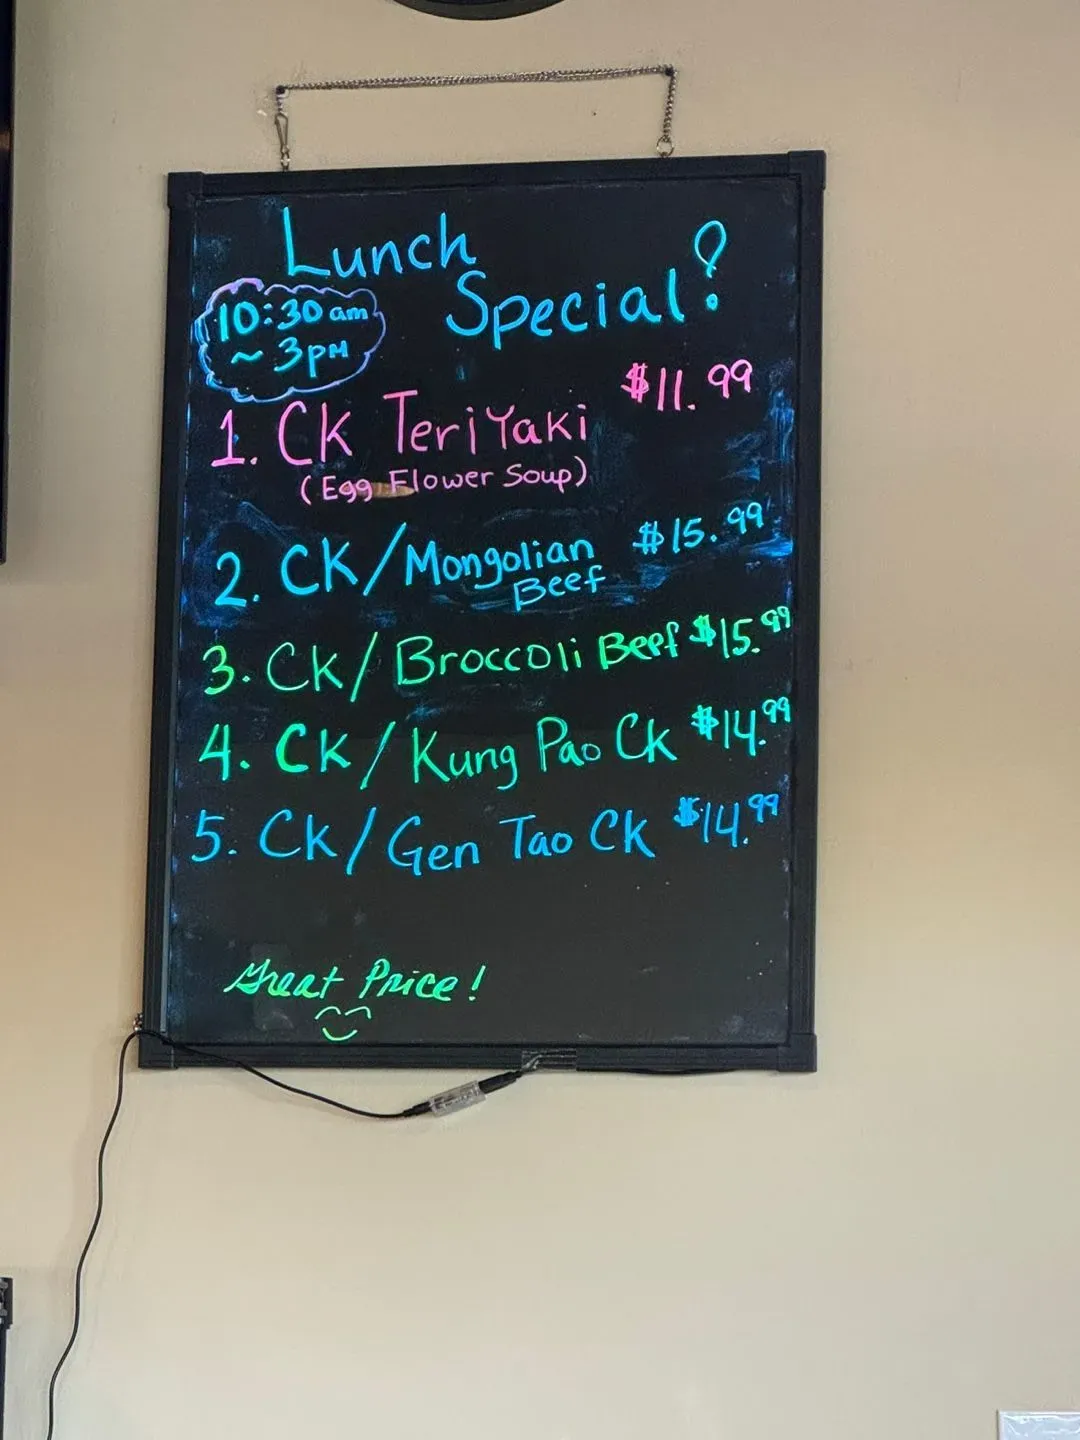 Lunch
Special!
10:30 am
~ 3pm
1. CK TeriYaki $11.99
(Egg Flower Soup)
2. CK/Mongolian $15.99
Beef
3. CK/Broccoli Beef $15.99
4. CK/Kung Pao CK $14.99
5. CK/Gen Tao CK $14.99
Great Price!